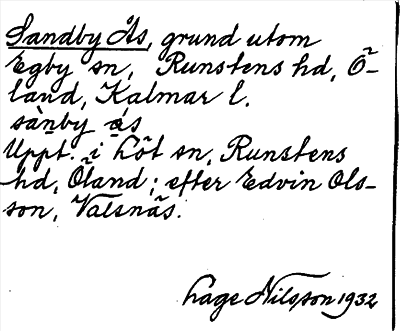 Sandby Ås, grund utom
Egby sn, Runstens hd, Ö-
land, Kalmar l.
sànby ås
Uppt. i Löt sn, Runstens
hd, Öland; efter Edvin Ols-
son, Valsnäs.
Lage Nilsson 1932